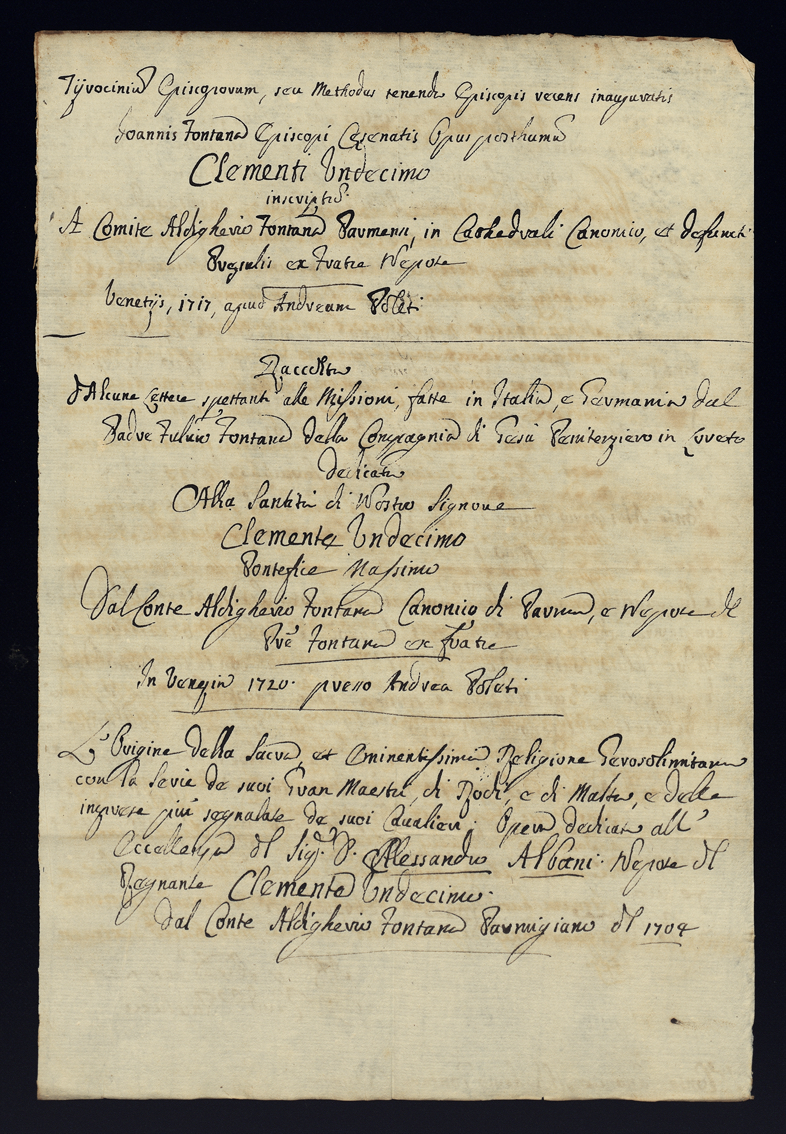 Tyrocinium Episcoporum, seu Methodus tenenda Episcopis recens inauguratis
Joannis Fontana Episcopi Cesenatis Opus posthumum
Clementi Undecimo
inscriptum.
A Comite Aldigherio Fontana Parmensi, in Cathedrali Canonico, et defuncti
Presulis ex Fratre Nepote
Venetijs, 1717, apud Andream Poleti
Raccolta
d'Alcune Lettere spettanti alle Missioni, fatte in Italia, e Germania dal
Padre Fulvio Fontana della Compagnia di Gesù Penitenziero in Loreto
dedicata
Alla Santità di Nostro Signore
Clemente Undecimo
Pontefice Massimo
Dal Conte Aldigherio Fontana Canonico di Parma, e Nepote del
Pre Fontana ex fratre
In Venezia 1720. presso Andrea Poleti
L'Origine della Sacra, et Eminentissima Religione Gerosolimitana
con la Serie de suoi Gran Maestri, di Rodi, e di Malta, e delle
imprese più segnalate de suoi Cavalieri. Opera dedicata all'
Eccellenza del Sig. D. Alessandro Albani. Nepote del
Regnante Clemente Undecimo.
Dal Conte Aldigherio Fontana Parmigiano del 1704